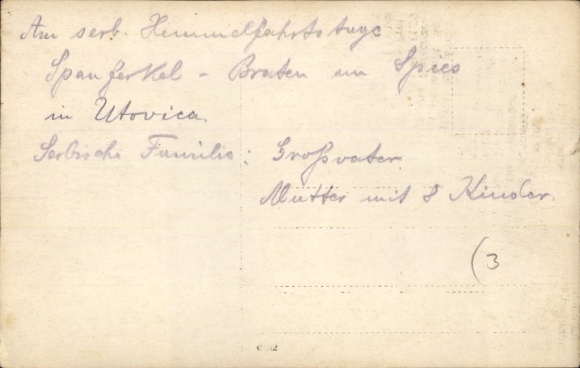 Am serb. Himmelfahrtstage
Spanferkel - Braten am Spies
in Utovica.
Serbische Familie: Großvater
Mutter mit 8 Kinder.
(3